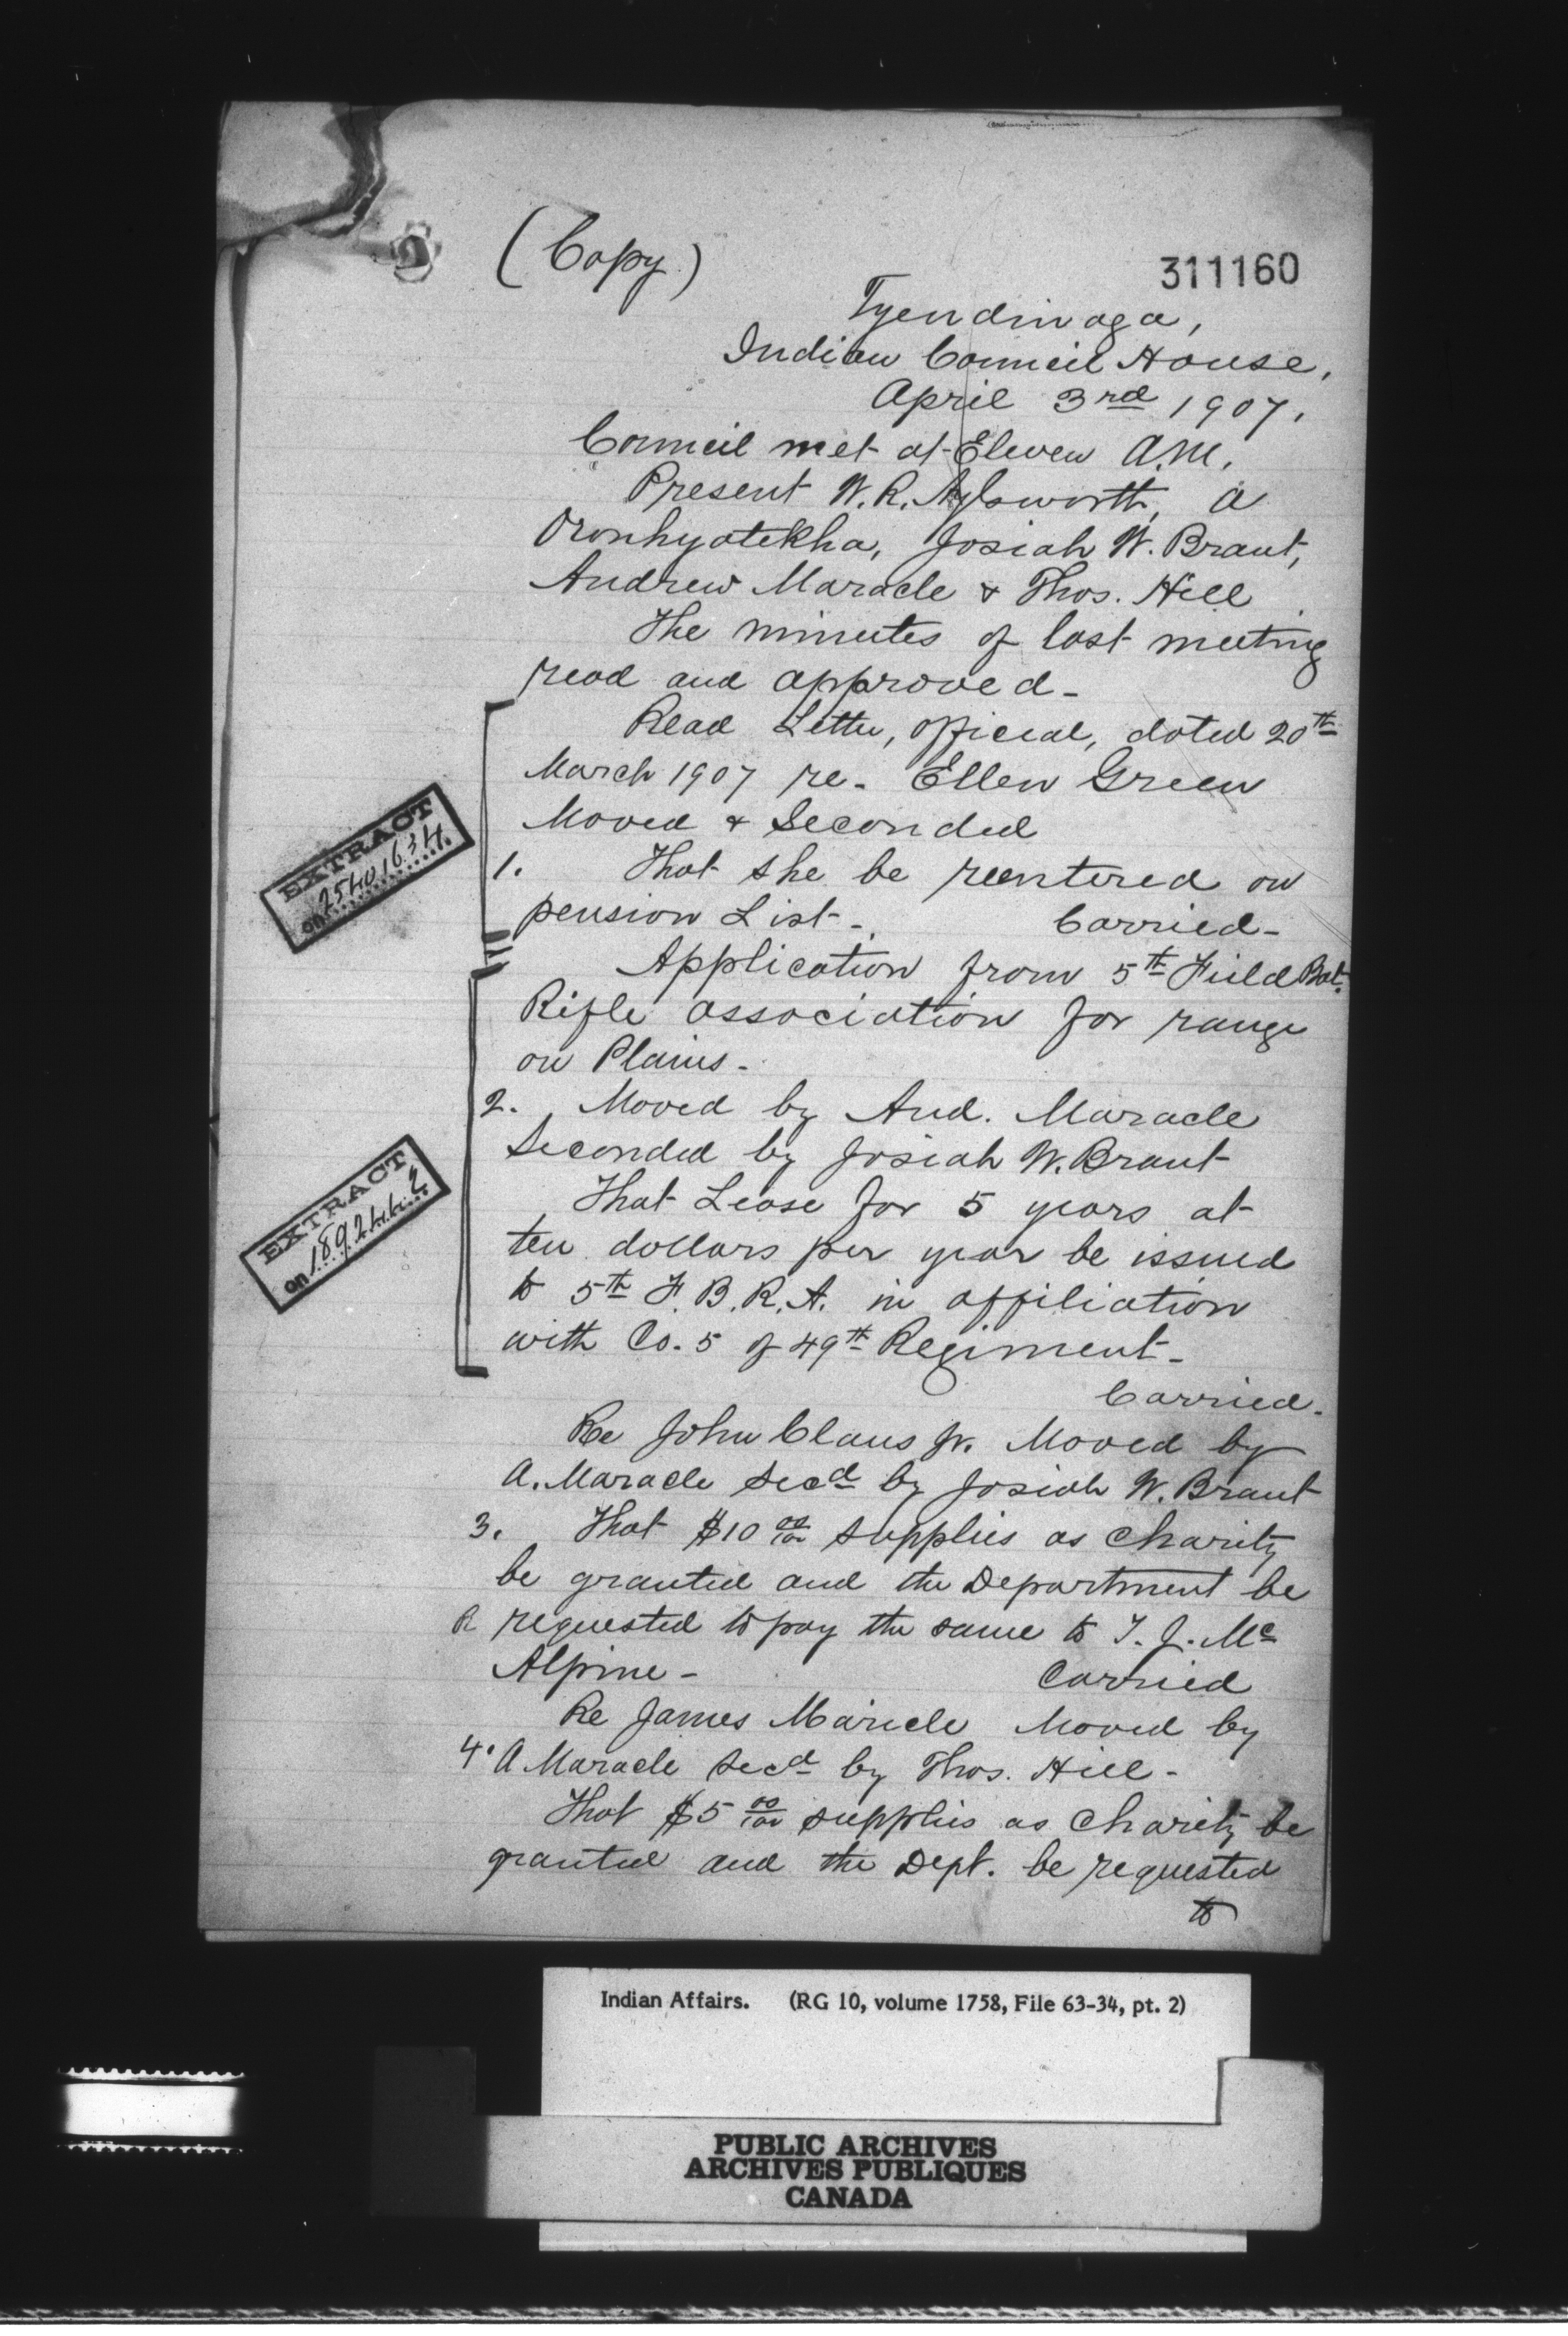 (Copy)
311160
Tyendinaga,
Indian Council House,
April 3rd 1907.
Council met at Eleven A.M.
Present W. R. Aylsworth, A
Oronhyatekha, Josiah W. Brant,
Andrew Maracle & Thos. Hill
The minutes of last meeting
read and approved -
Read Letter, official, dated 20th
March 1907 re. Ellen Green
Moved & Seconded
EXTRACT
on 254016 34
1. That she be reentered on
pension List - Carried -
Application from 5th Field Bat.
Rifle association for range
on Plains -
2. Moved by And. Maracle
Seconded by Josiah W. Brant
EXTRACT
on 189244.2
That Lease for 5 years at
ten dollars per year be issued
to 5th F. B. R. A. in affiliation
with Co. 5 of 49th Regiment -
Carried.
Re John Claus Jr. Moved by
A. Maracle Secd by Josiah W. Brant
3. That $10 00/100 supplies as charity
be granted and the Department be
R requested to pay the same to T. J. Mc
Alpine - Carried
Re James Maricle Moved by
4. A Maracle Secd by Thos. Hill -
That $5 00/100 supplies as charity be
granted and the Dept. be requested
to
Indian Affairs. (RG 10, volume 1758, File 63-34, pt. 2)
PUBLIC ARCHIVES
ARCHIVES PUBLIQUES
CANADA